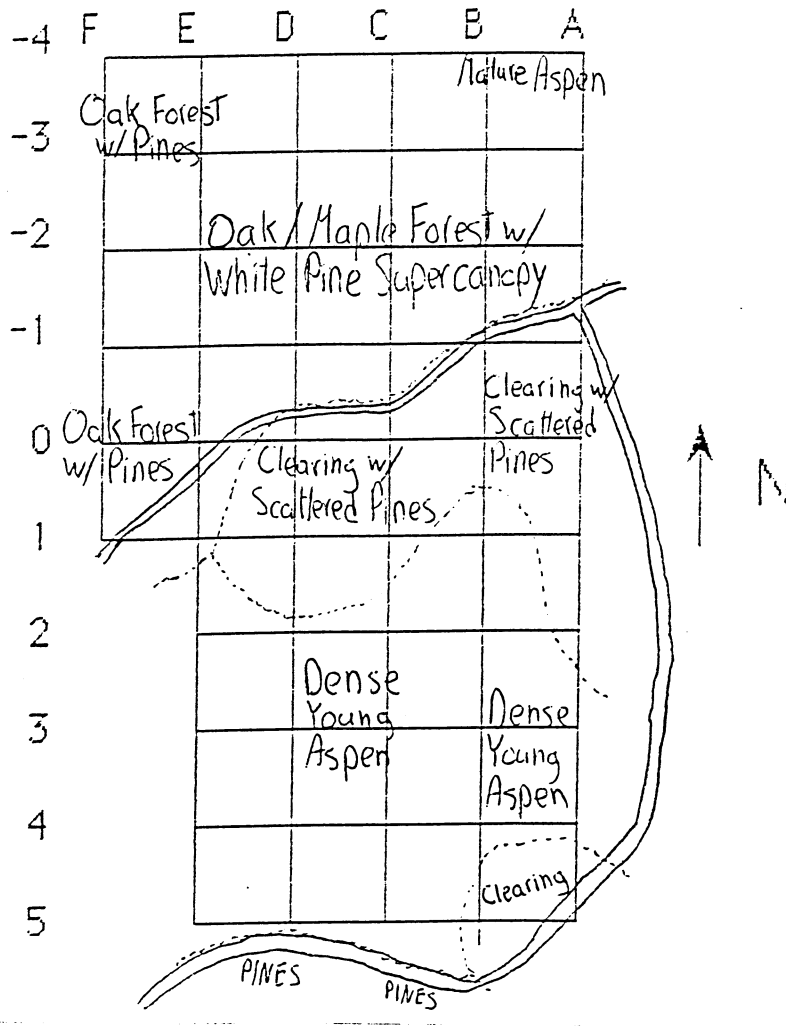 F E D C B A
-4
Mature Aspen
Oak Forest
w/ Pines
-3
-2
Oak / Maple Forest w/
White Pine Supercanopy
-1
Clearing w/
Scattered
Pines
0
Oak Forest
w/ Pines
Clearing w/
Scattered Pines
N
1
2
Dense
Young
Aspen
3
Dense
Young
Aspen
4
Clearing
5
PINES
PINES